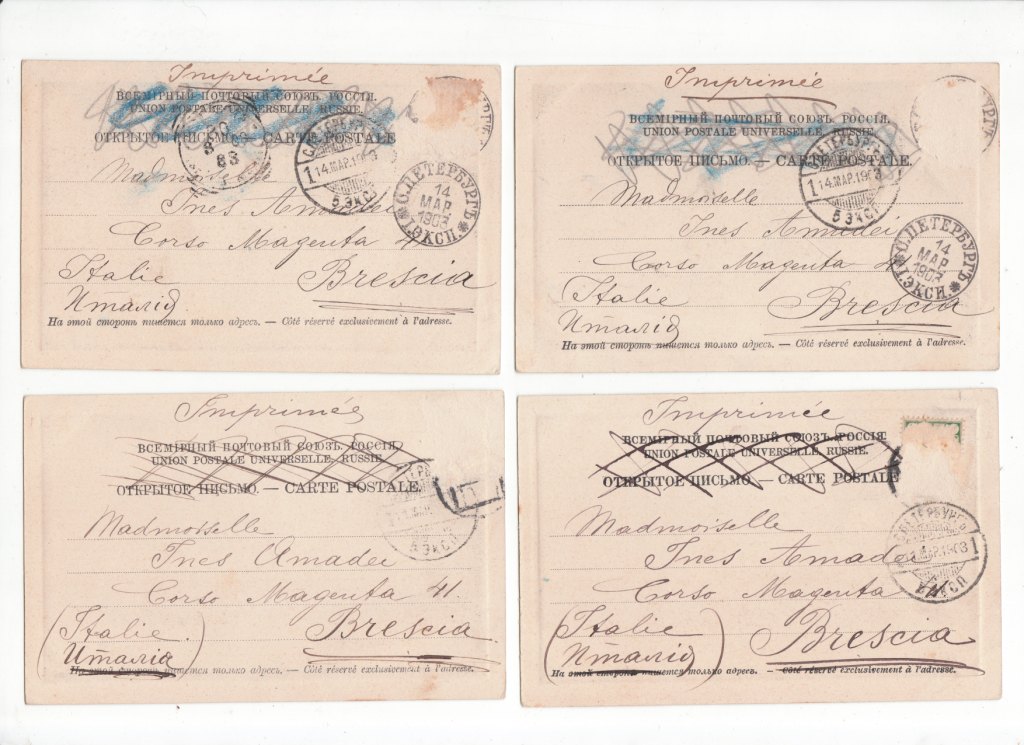 Imprimée
ВСЕМІРНЫЙ ПОЧТОВЫЙ СОЮЗЪ. РОССІЯ.
UNION POSTALE UNIVERSELLE. RUSSIE.
ОТКРЫТОЕ ПИСЬМО. — CARTE POSTALE
С.ПЕТЕРБУРГЪ
1 14.МАР.1903
5 ЭКСП
С.ПЕТЕРБУРГЪ
14
МАР
1903
1.ЭКСП.
Madmoiselle
Ines Amadei
Corso Magenta 41
Italie
Brescia
Италія
На этой сторонѣ пишется только адресъ. — Côté réservé exclusivement à l'adresse.
Imprimée
ВСЕМІРНЫЙ ПОЧТОВЫЙ СОЮЗЪ. РОССІЯ.
UNION POSTALE UNIVERSELLE. RUSSIE
ОТКРЫТОЕ ПИСЬМО. — CARTE POSTALE.
С.ПЕТЕРБУРГЪ
1 14.МАР.1903
5 ЭКСП
Madmoiselle
Ines Amadei
Corso Magenta
С.ПЕТЕРБУРГЪ
14
МАР
1903
1.ЭКСП.
Italie
Brescia
Италія
На этой сторонѣ пишется только адресъ. — Côté réservé exclusivement à l'adresse.
Imprimée
ВСЕМІРНЫЙ ПОЧТОВЫЙ СОЮЗЪ. РОССІЯ.
UNION POSTALE UNIVERSELLE. RUSSIE.
ОТКРЫТОЕ ПИСЬМО. — CARTE POSTALE.
5 ЭКСП
Madmoiselle
Ines Amadei
Corso Magenta 41.
Italie.
Brescia
Италія
На этой сторонѣ пишется только адресъ. — Côté réservé exclusivement à l'adresse.
Imprimée
ВСЕМІРНЫЙ ПОЧТОВЫЙ СОЮЗЪ. РОССІЯ.
UNION POSTALE UNIVERSELLE. RUSSIE.
ОТКРЫТОЕ ПИСЬМО. — CARTE POSTALE
МАР.1903 1
ЭКСП
Madmoiselle
Ines Amadei
Corso Magenta 41
Italie
Brescia
Италія
На этой сторонѣ пишется только адресъ. — Côté réservé exclusivement à l'adresse.